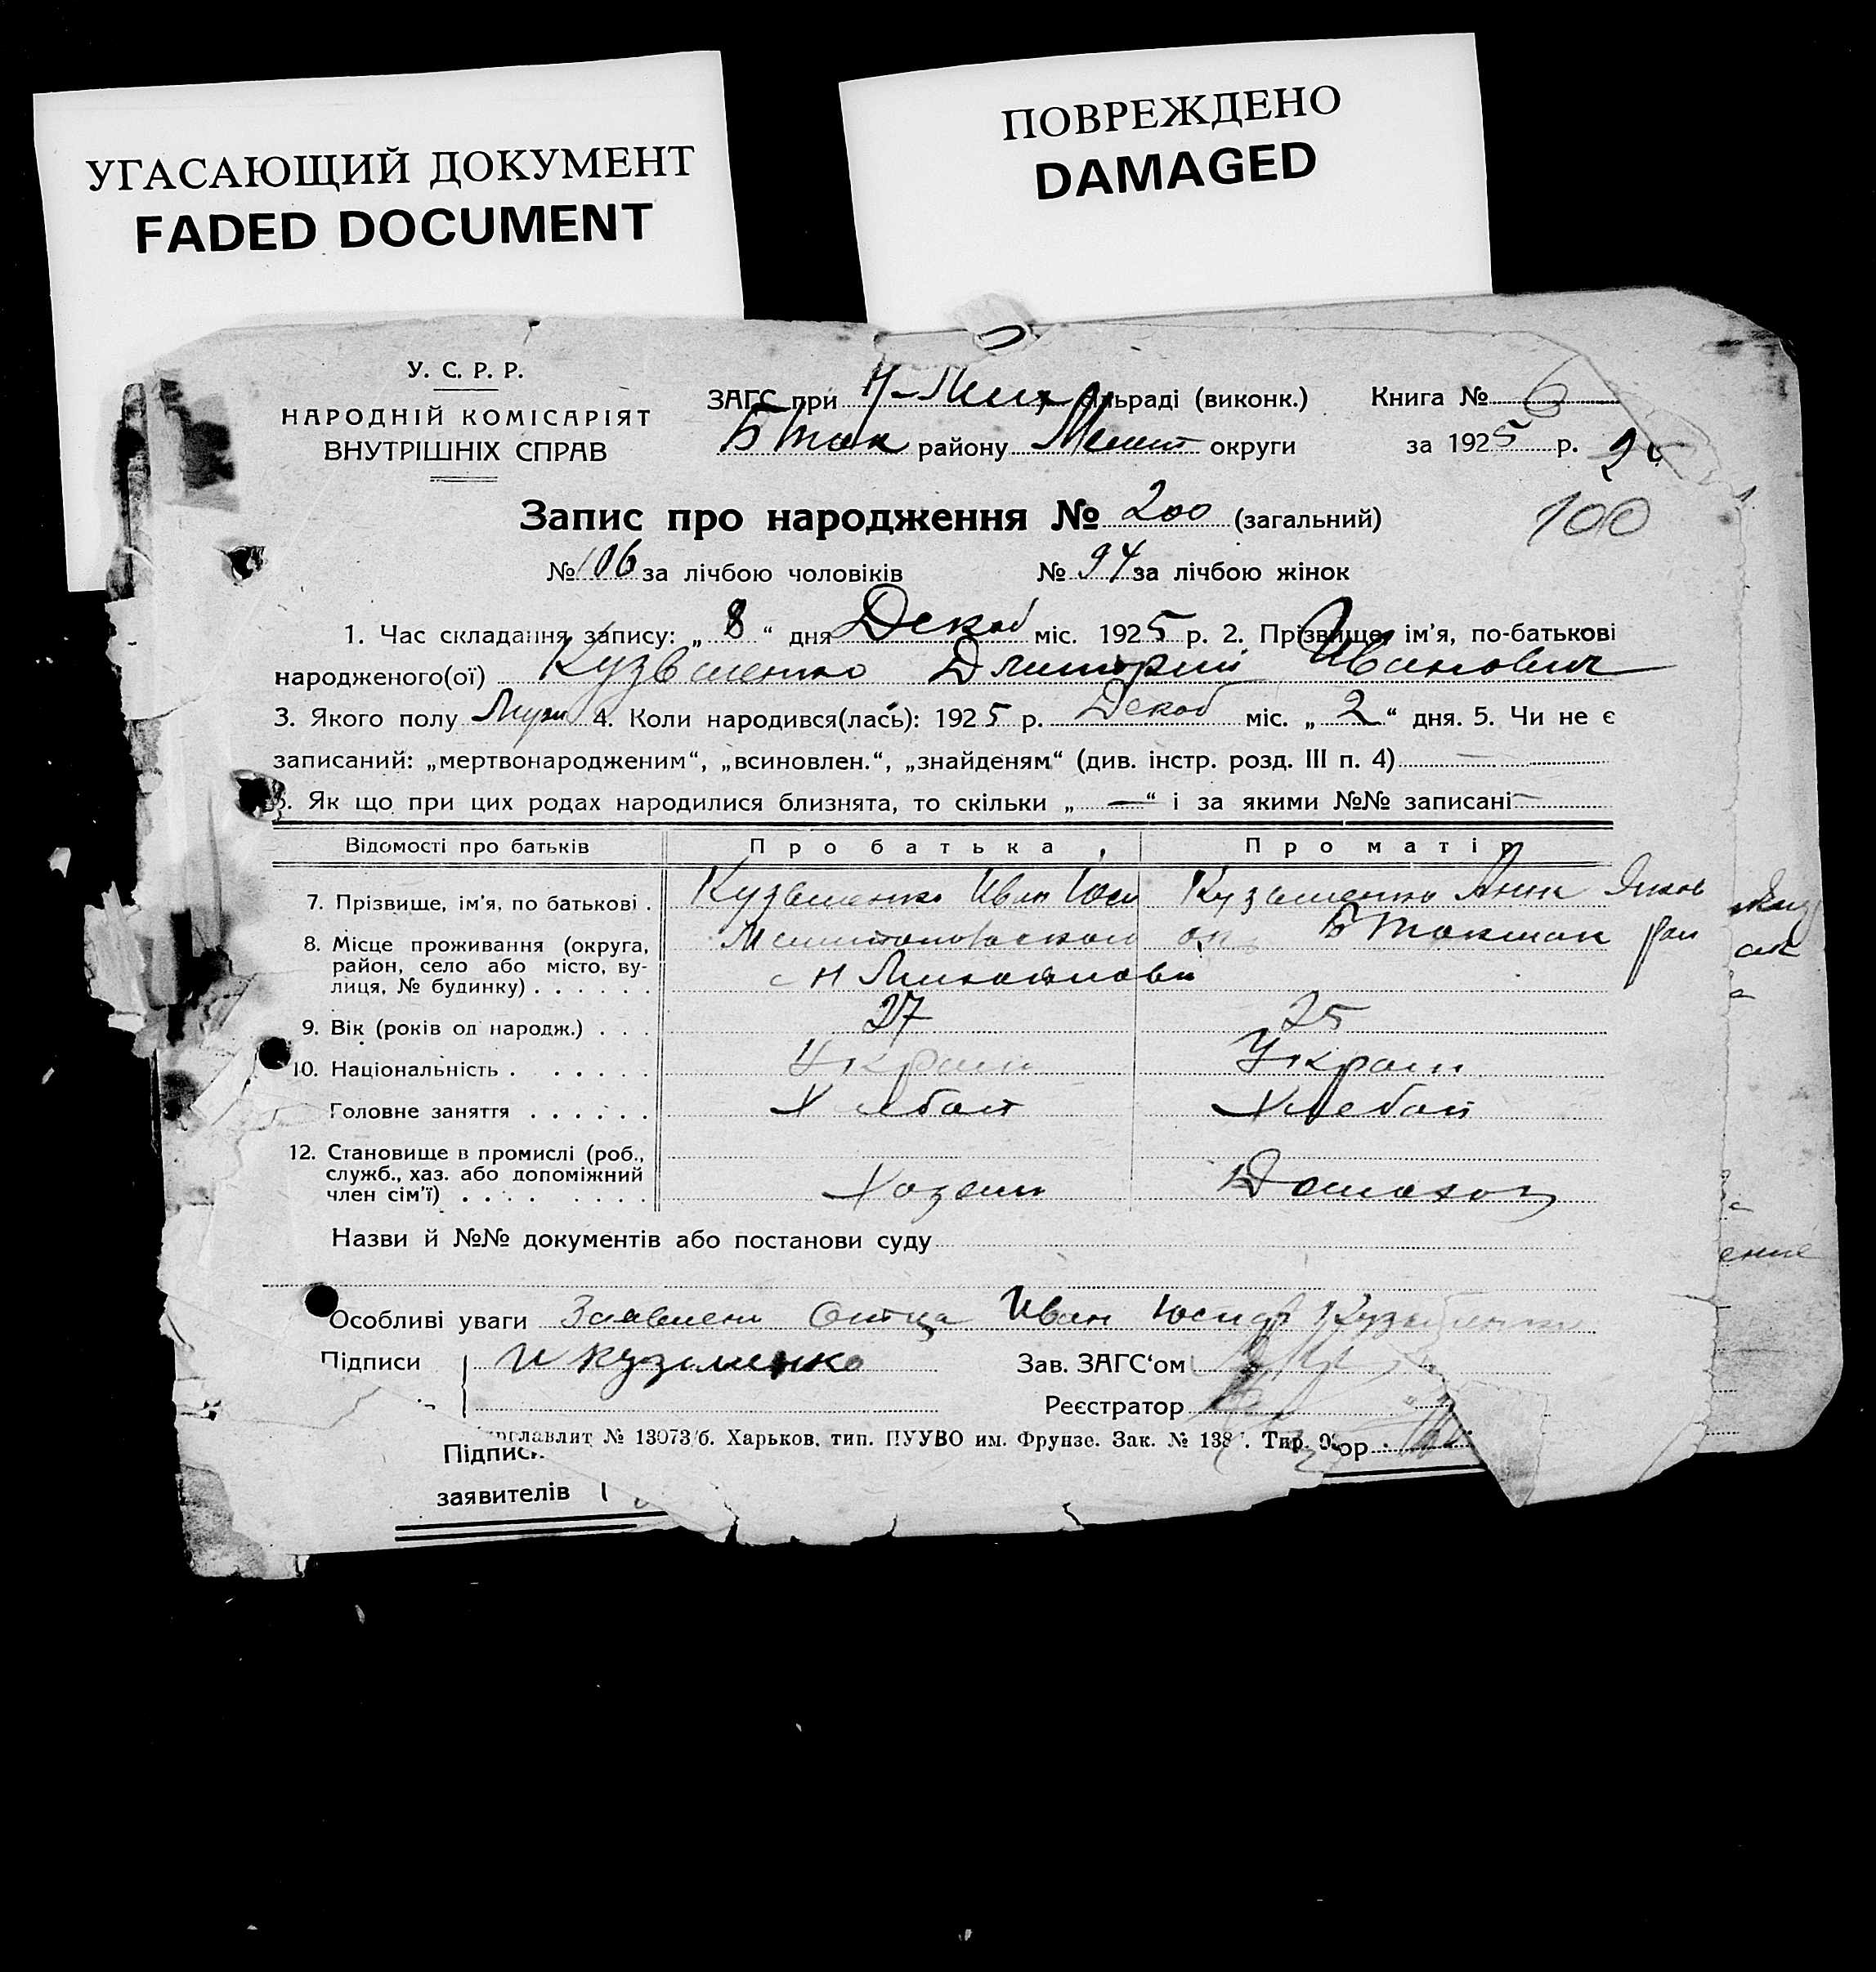 УГАСАЮЩИЙ ДОКУМЕНТ
FADED DOCUMENT
ПОВРЕЖДЕНО
DAMAGED
У. С. Р. Р.
НАРОДНІЙ КОМІСАРІЯТ
ВНУТРІШНІХ СПРАВ
ЗАГС при Н-Мих сільраді (виконк.) Книга № 6
Б Ток району Мелит округи за 1925 р.
100
Запис про народження № 200 (загальний)
№ 106 за лічбою чоловіків № 94 за лічбою жінок
1. Час складання запису: „ 8 “ дня Декаб міс. 1925 р. 2. Прізвище, ім'я, по-батькові
народженого(ої) Кузьменко Дмитрий Иванович
3. Якого полу Муж 4. Коли народився(лась): 1925 р. Декаб міс. „ 2 “ дня. 5. Чи не є
записаний: „мертвонародженим“, „всиновлен.“, „знайденям“ (див. інстр. розд. III п. 4) —
6. Як що при цих родах народилися близнята, то скільки „ — “ і за якими №№ записані —
Відомості про батьків Про батька Про матір
7. Прізвище, ім'я, по батькові . Кузьменко Иван Юси Кузьменко Анна Яковл
8. Місце проживання (округа, Мелитопольском ок Б Токмак рай
район, село або місто, ву-
лиця, № будинку) . . . . . . с Н Михайловка
9. Вік (років од народж.) . . . 27 25
10. Національність . . . . . . Украин Украин
Головне заняття . . . . . . Хлебоп Хлебоп
12. Становище в промислі (роб.,
служб., хаз. або допоміжний
член сім'ї) . . . . . . . . Хозяин Домахоз
Назви й №№ документів або постанови суду
Особливі уваги Заявлени Отца Иван Юсиф Кузьменко
Підписи И Кузьменко Зав. ЗАГС‘ом
Реєстратор
№ 13073/б. Харьков. тип. ПУУВО им. Фрунзе. Зак. № 138 . Тир.
Підписи ор
заявителів